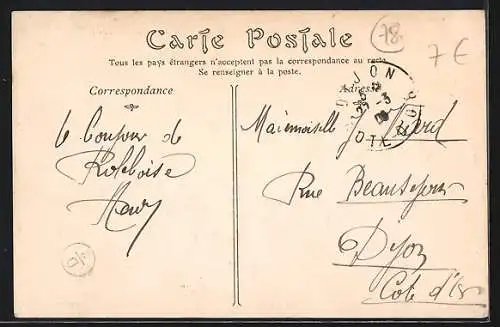 Carte Postale
78
7 €
Tous les pays étrangers n'acceptent pas la correspondance au recto
Se renseigner à la poste.
Correspondance
Le bonjour de
Rolleboise
Henry
Adresse
DIJON
COTE D'OR
Mademoiselle
Rue Beauséjour
Dijon
Cote d'Or